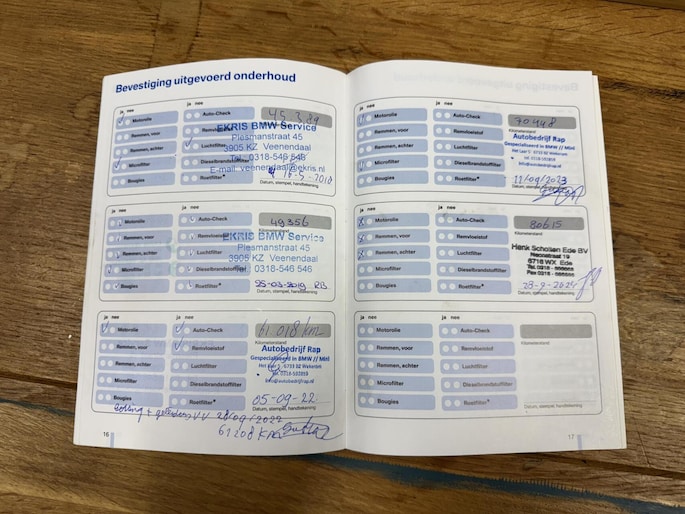 Bevestiging uitgevoerd onderhoud
ja nee
ja nee
Motorolie
Auto-Check
45.389
Remmen, voor
Remvloeistof
EKRIS BMW Service
Plesmanstraat 45
Remmen, achter
Luchtfilter
3905 KZ Veenendaal
Tel. 0318-546 546
Microfilter
Dieselbrandstoffilter
E-mail: veenendaal@ekris.nl
Bougies
Roetfilter*
Datum, stempel, handtekening
ja nee
ja nee
Motorolie
Auto-Check
49356
Kilometerstand
Remmen, voor
Remvloeistof
EKRIS BMW Service
Plesmanstraat 45
Remmen, achter
Luchtfilter
3905 KZ Veenendaal
Microfilter
Dieselbrandstoffilter
Tel. 0318-546 546
Bougies
Roetfilter*
Datum, stempel, handtekening
ja nee
ja nee
Motorolie
Auto-Check
61.018 km
Kilometerstand
Remmen, voor
Remvloeistof
Autobedrijf Rap
Gespecialiseerd in BMW // Mini
Remmen, achter
Luchtfilter
Het Laar 5 6733 BZ Wekerom
Microfilter
Dieselbrandstoffilter
info@autobedrijfrap.nl
Bougies
Roetfilter*
05-09-22
Datum, stempel, handtekening
28/09/2022
61208 km
16
ja nee
ja nee
Motorolie
Auto-Check
70448
Kilometerstand
Remmen, voor
Remvloeistof
Autobedrijf Rap
Gespecialiseerd in BMW // Mini
Remmen, achter
Luchtfilter
Het Laar 5 6733 BZ Wekerom
Microfilter
Dieselbrandstoffilter
info@autobedrijfrap.nl
Bougies
Roetfilter*
11/09/2023
Datum, stempel, handtekening
ja nee
ja nee
Motorolie
Auto-Check
80615
Kilometerstand
Remmen, voor
Remvloeistof
Henk Scholten Ede BV
Remmen, achter
Luchtfilter
6718 WX Ede
Microfilter
Dieselbrandstoffilter
Bougies
Roetfilter*
23-9-2024
Datum, stempel, handtekening
ja nee
ja nee
Motorolie
Auto-Check
Kilometerstand
Remmen, voor
Remvloeistof
Remmen, achter
Luchtfilter
Microfilter
Dieselbrandstoffilter
Bougies
Roetfilter*
Datum, stempel, handtekening
17